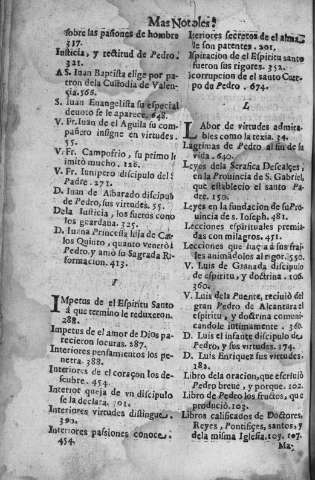 Mas Notables.
sobre las pasiones de hombre
317.
Iusticia, y rectitud de Pedro.
321.
A S. Iuan Baptista elige por pa-
tron dela Custodia de Valen-
çia. 566.
S. Iuan Euangelista su especial
deuoto se le aparece. 648.
V. Fr. Iuan de el Aguila su com-
pañero insigne en virtudes.
55.
V. Fr. Campofrio, su primo le
imitò mucho. 126.
V. Fr. Iunipero discipulo de el
Padre. 271.
D. Iuan de Albarado discipulo
de Pedro, sus virtudes. 55.
Dela Iusticia, los fueros como
les guardaua. 325.
D. Iuana Princesa hija de Car-
los Quinto, quanto venerò à
Pedro, y amò su Sagrada Re-
formacion. 413.
I
IMpetus de el Espiritu Santo
à que termino le reduxeron.
288.
Impetus de el amor de Dios pa-
recieron locuras. 287.
Interiores pensamientos los pe-
netra. 388.
Interiores de el coraçon los des-
cubre. 454.
Interior queja de vn discipulo
se la declara. 701.
Interiores virtudes distingue.
390.
Interiores passiones conoce.
454.
Interiores secretos de el alma
le son patentes. 201.
Inspiracion de el Espiritu santo
fueron sus rigores. 352.
Incorrupcion de el santo Cuer-
po de Pedro. 674.
L
LAbor de virtudes admira-
bles como la texia. 34.
Lagrimas de Pedro al fin de su
vida. 640.
Leyes dela Serafica Descalçes,
en la Prouincia de S. Gabriel,
que establecio el santo Pa-
dre. 150.
Leyes en la fundacion de su Pro-
uincia de S. Ioseph. 481.
Lecciones espirituales premia-
das con milagros. 451.
Lecciones que haçia à sus frai-
les animádolos al rigor. 550.
V. Luis de Granada discipulo
de espiritu, y doctrina. 106.
360.
V. Luis dela Puente, reciuiò del
gran Pedro de Alcantara el
espiritu, y doctrina comuni-
candole intimamente. 360.
D. Luis el infante discipulo de
Pedro, y sus virtudes. 174.
D. Luis Enriquez sus virtudes.
182.
Libro dela oracion, que escriuiò
Pedro breue, y porque. 102.
Libro de Pedro los fructos, que
produciò. 103.
Libros calificados de Doctores,
Reyes, Pontifices, santos, y
dela misma Iglesia. 103. 107.
Ma-